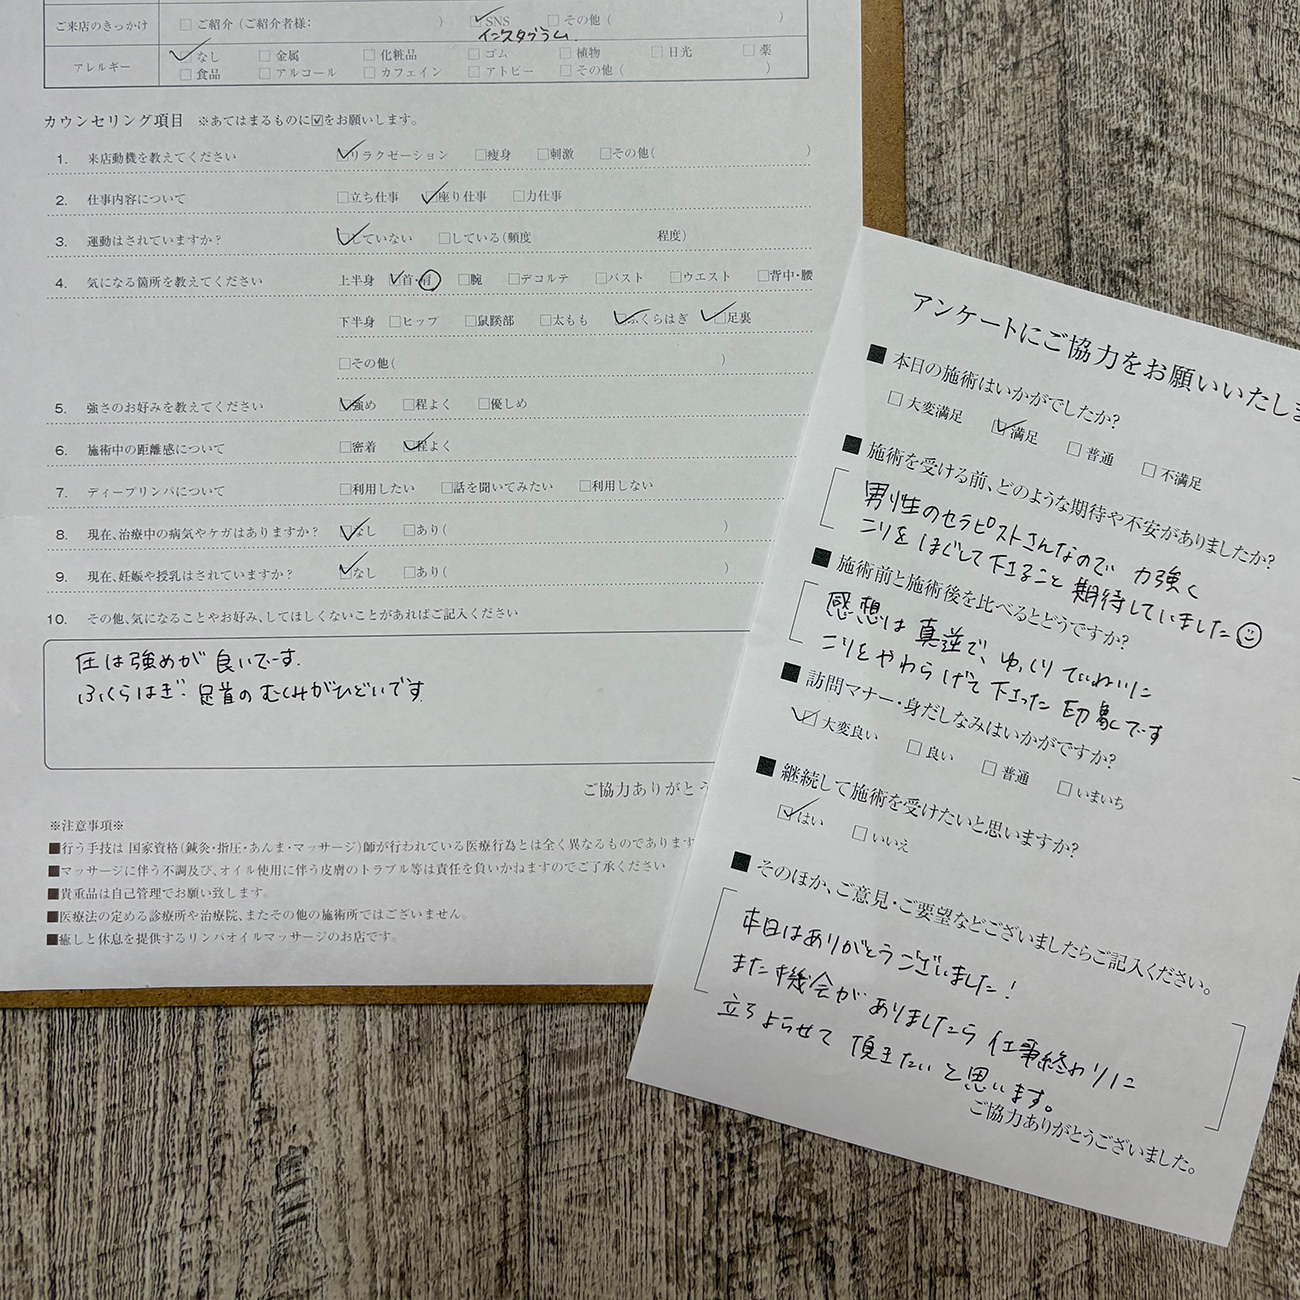 ご来店のきっかけ □ご紹介（ご紹介者様： ） ☑SNS □その他（ ）
インスタグラム
アレルギー ☑なし □金属 □化粧品 □ゴム □植物 □日光 □薬
□食品 □アルコール □カフェイン □アトピー □その他（ ）
カウンセリング項目 ※あてはまるものに☑をお願いします。
1. 来店動機を教えてください ☑リラクゼーション □痩身 □刺激 □その他( )
2. 仕事内容について □立ち仕事 ☑座り仕事 □力仕事
3. 運動はされていますか？ ☑していない □している(頻度 程度)
4. 気になる箇所を教えてください 上半身 ☑首・肩 □腕 □デコルテ □バスト □ウエスト □背中・腰
下半身 □ヒップ □鼠蹊部 □太もも ☑ふくらはぎ ☑足裏
□その他( )
5. 強さのお好みを教えてください ☑強め □程よく □優しめ
6. 施術中の距離感について □密着 ☑程よく
7. ディープリンパについて □利用したい □話を聞いてみたい □利用しない
8. 現在、治療中の病気やケガはありますか？ ☑なし □あり( )
9. 現在、妊娠や授乳はされていますか？ ☑なし □あり( )
10. その他、気になることやお好み、してほしくないことがあればご記入ください
圧は強めが良いです.
ふくらはぎ・足首のむくみがひどいです
ご協力ありがとう
※注意事項※
■行う手技は 国家資格(鍼灸・指圧・あんま・マッサージ)師が行われている医療行為とは全く異なるものであります
■マッサージに伴う不調及び、オイル使用に伴う皮膚のトラブル等は責任を負いかねますのでご了承ください
■貴重品は自己管理でお願い致します。
■医療法の定める診療所や治療院、またその他の施術所ではございません。
■癒しと休息を提供するリンパオイルマッサージのお店です。
アンケートにご協力をお願いいたしま
■ 本日の施術はいかがでしたか？
□ 大変満足 ☑ 満足 □ 普通 □ 不満足
■ 施術を受ける前、どのような期待や不安がありましたか？
男性のセラピストさんなので 力強く
こりをほぐして下さること期待していました☺
■ 施術前と施術後を比べるとどうですか？
感想は真逆で、ゆっくりていねいに
こりをやわらげて下さった印象です
■ 訪問マナー・身だしなみはいかがですか？
☑ 大変良い □ 良い □ 普通 □ いまいち
■ 継続して施術を受けたいと思いますか？
☑ はい □ いいえ
■ そのほか、ご意見・ご要望などございましたらご記入ください。
本日はありがとうございました！
また機会がありましたら仕事終わりに
立ちよらせて頂きたいと思います。
ご協力ありがとうございました。